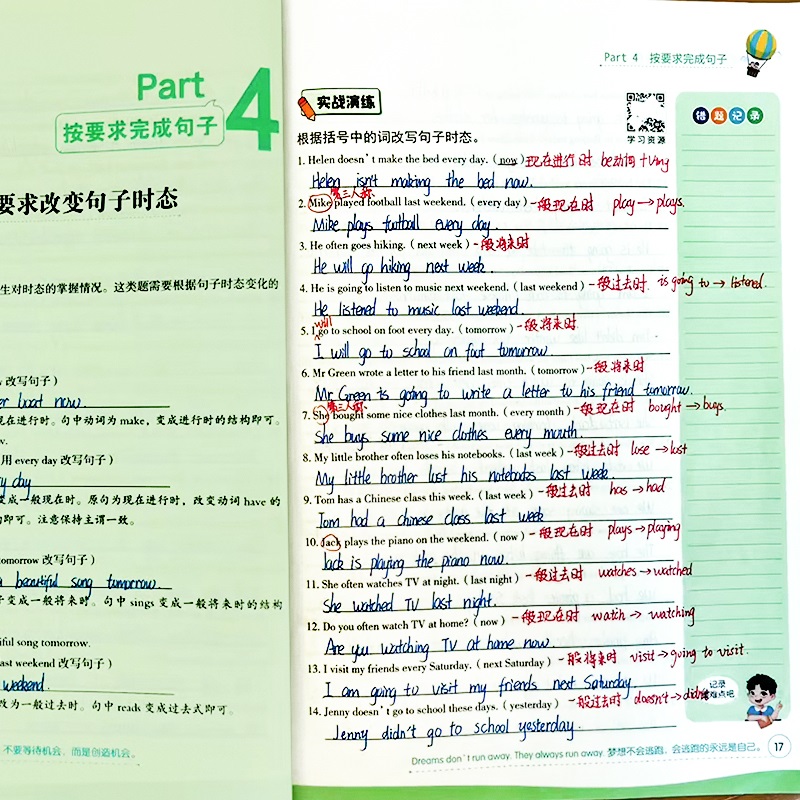 Part 4
按要求完成句子
要求改变句子时态
生对时态的掌握情况。这类题需要根据句子时态变化的
改写句子）
boat now
现在进行时。句中动词为 make，变成进行时的结构即可。
用 every day 改写句子）
day
变成一般现在时。原句为现在进行时，改变动词 have 的
即可。注意保持主谓一致。
tomorrow 改写句子）
a beautiful song tomorrow.
子变成一般将来时。句中 sings 变成一般将来时的结构
iful song tomorrow.
last weekend 改写句子）
weekend.
改为一般过去时。句中 reads 变成过去式即可。
不要等待机会，而是创造机会。
Part 4 按要求完成句子
实战演练
学习资源
错题记录
根据括号中的词改写句子时态。
1. Helen doesn't make the bed every day. ( now ) 现在进行时 be动词+Ving
Helen isn't making the bed now.
第三人称
2. Mike played football last weekend. ( every day ) -般现在时 play→plays.
Mike plays football every day.
3. He often goes hiking. ( next week ) -般将来时
He will go hiking next week.
4. He is going to listen to music next weekend. ( last weekend ) -般过去时 is going to → listened.
He listened to music last weekend.
will
5. I go to school on foot every day. ( tomorrow ) -般将来时
I will go to school on foot tomorrow.
6. Mr Green wrote a letter to his friend last month. ( tomorrow ) -般将来时
Mr Green is going to write a letter to his friend tomorrow.
第三人称
7. She bought some nice clothes last month. ( every month ) -般现在时 bought →buys.
She buys some nice clothes every month.
8. My little brother often loses his notebooks. ( last week ) -般过去时 lose →lost
My little brother lost his notebooks last week.
9. Tom has a Chinese class this week. ( last week ) -般过去时 has →had
Tom had a chinese class last week
10. Jack plays the piano on the weekend. ( now ) -般现在时 plays→playing
Jack is playing the piano now.
11. She often watches TV at night. ( last night ) -般过去时 watches→watched
She watched TV last night.
12. Do you often watch TV at home? ( now ) -般现在时 watch → watching
Are you watching TV at home now.
13. I visit my friends every Saturday. ( next Saturday ) -般将来时 visit→going to visit.
I am going to visit my friends next Saturday.
14. Jenny doesn't go to school these days. ( yesterday ) -般过去时 doesn't→didn't
Jenny didn't go to school yesterday.
记录
难点吧
Dreams don't run away. They always run away. 梦想不会逃跑，会逃跑的永远是自己。 17